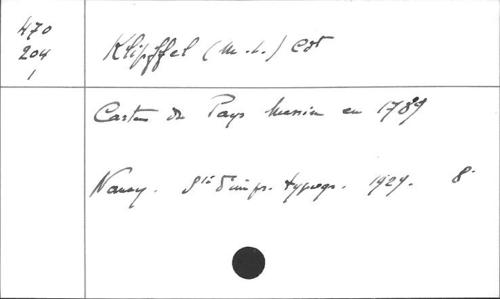 470
204
1
Klipffel (M. L.) Cdt
Castes du Pays Messin en 1789
Nancy. Sté d'impr. typogr. 1929. 8°